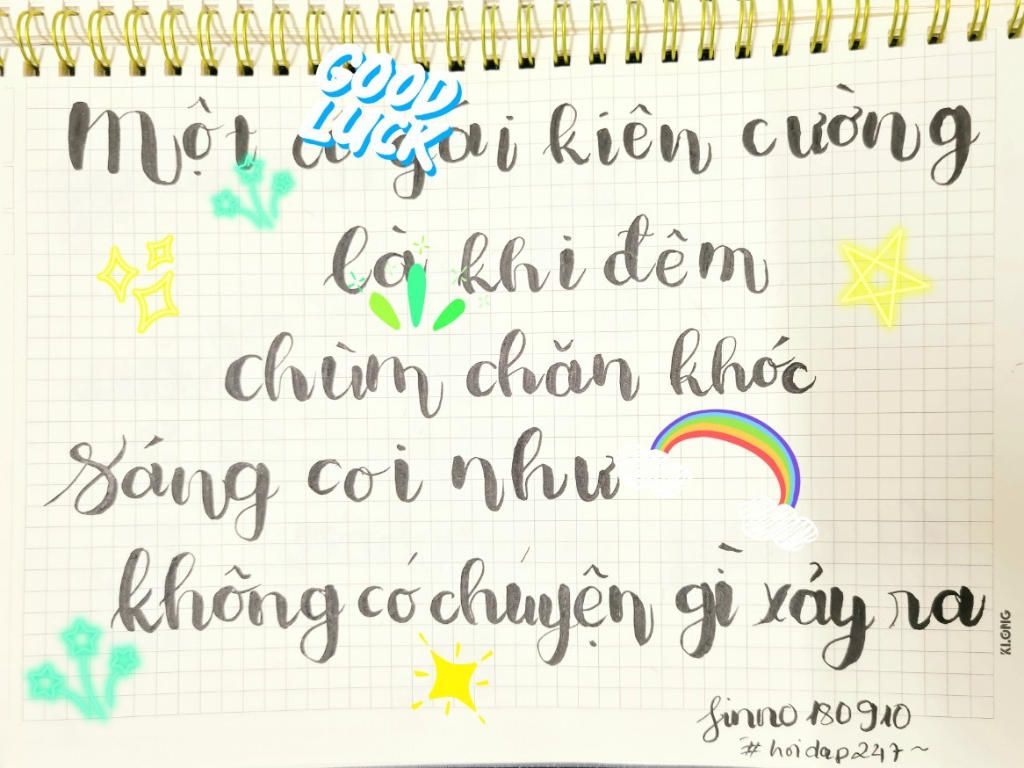 GOOD
LUCK
Một gái kiên cường
là khi đêm
chùm chăn khóc
sáng coi như
không có chúyện gì xảy ra
KLONG
finno180910
#hoidap247~